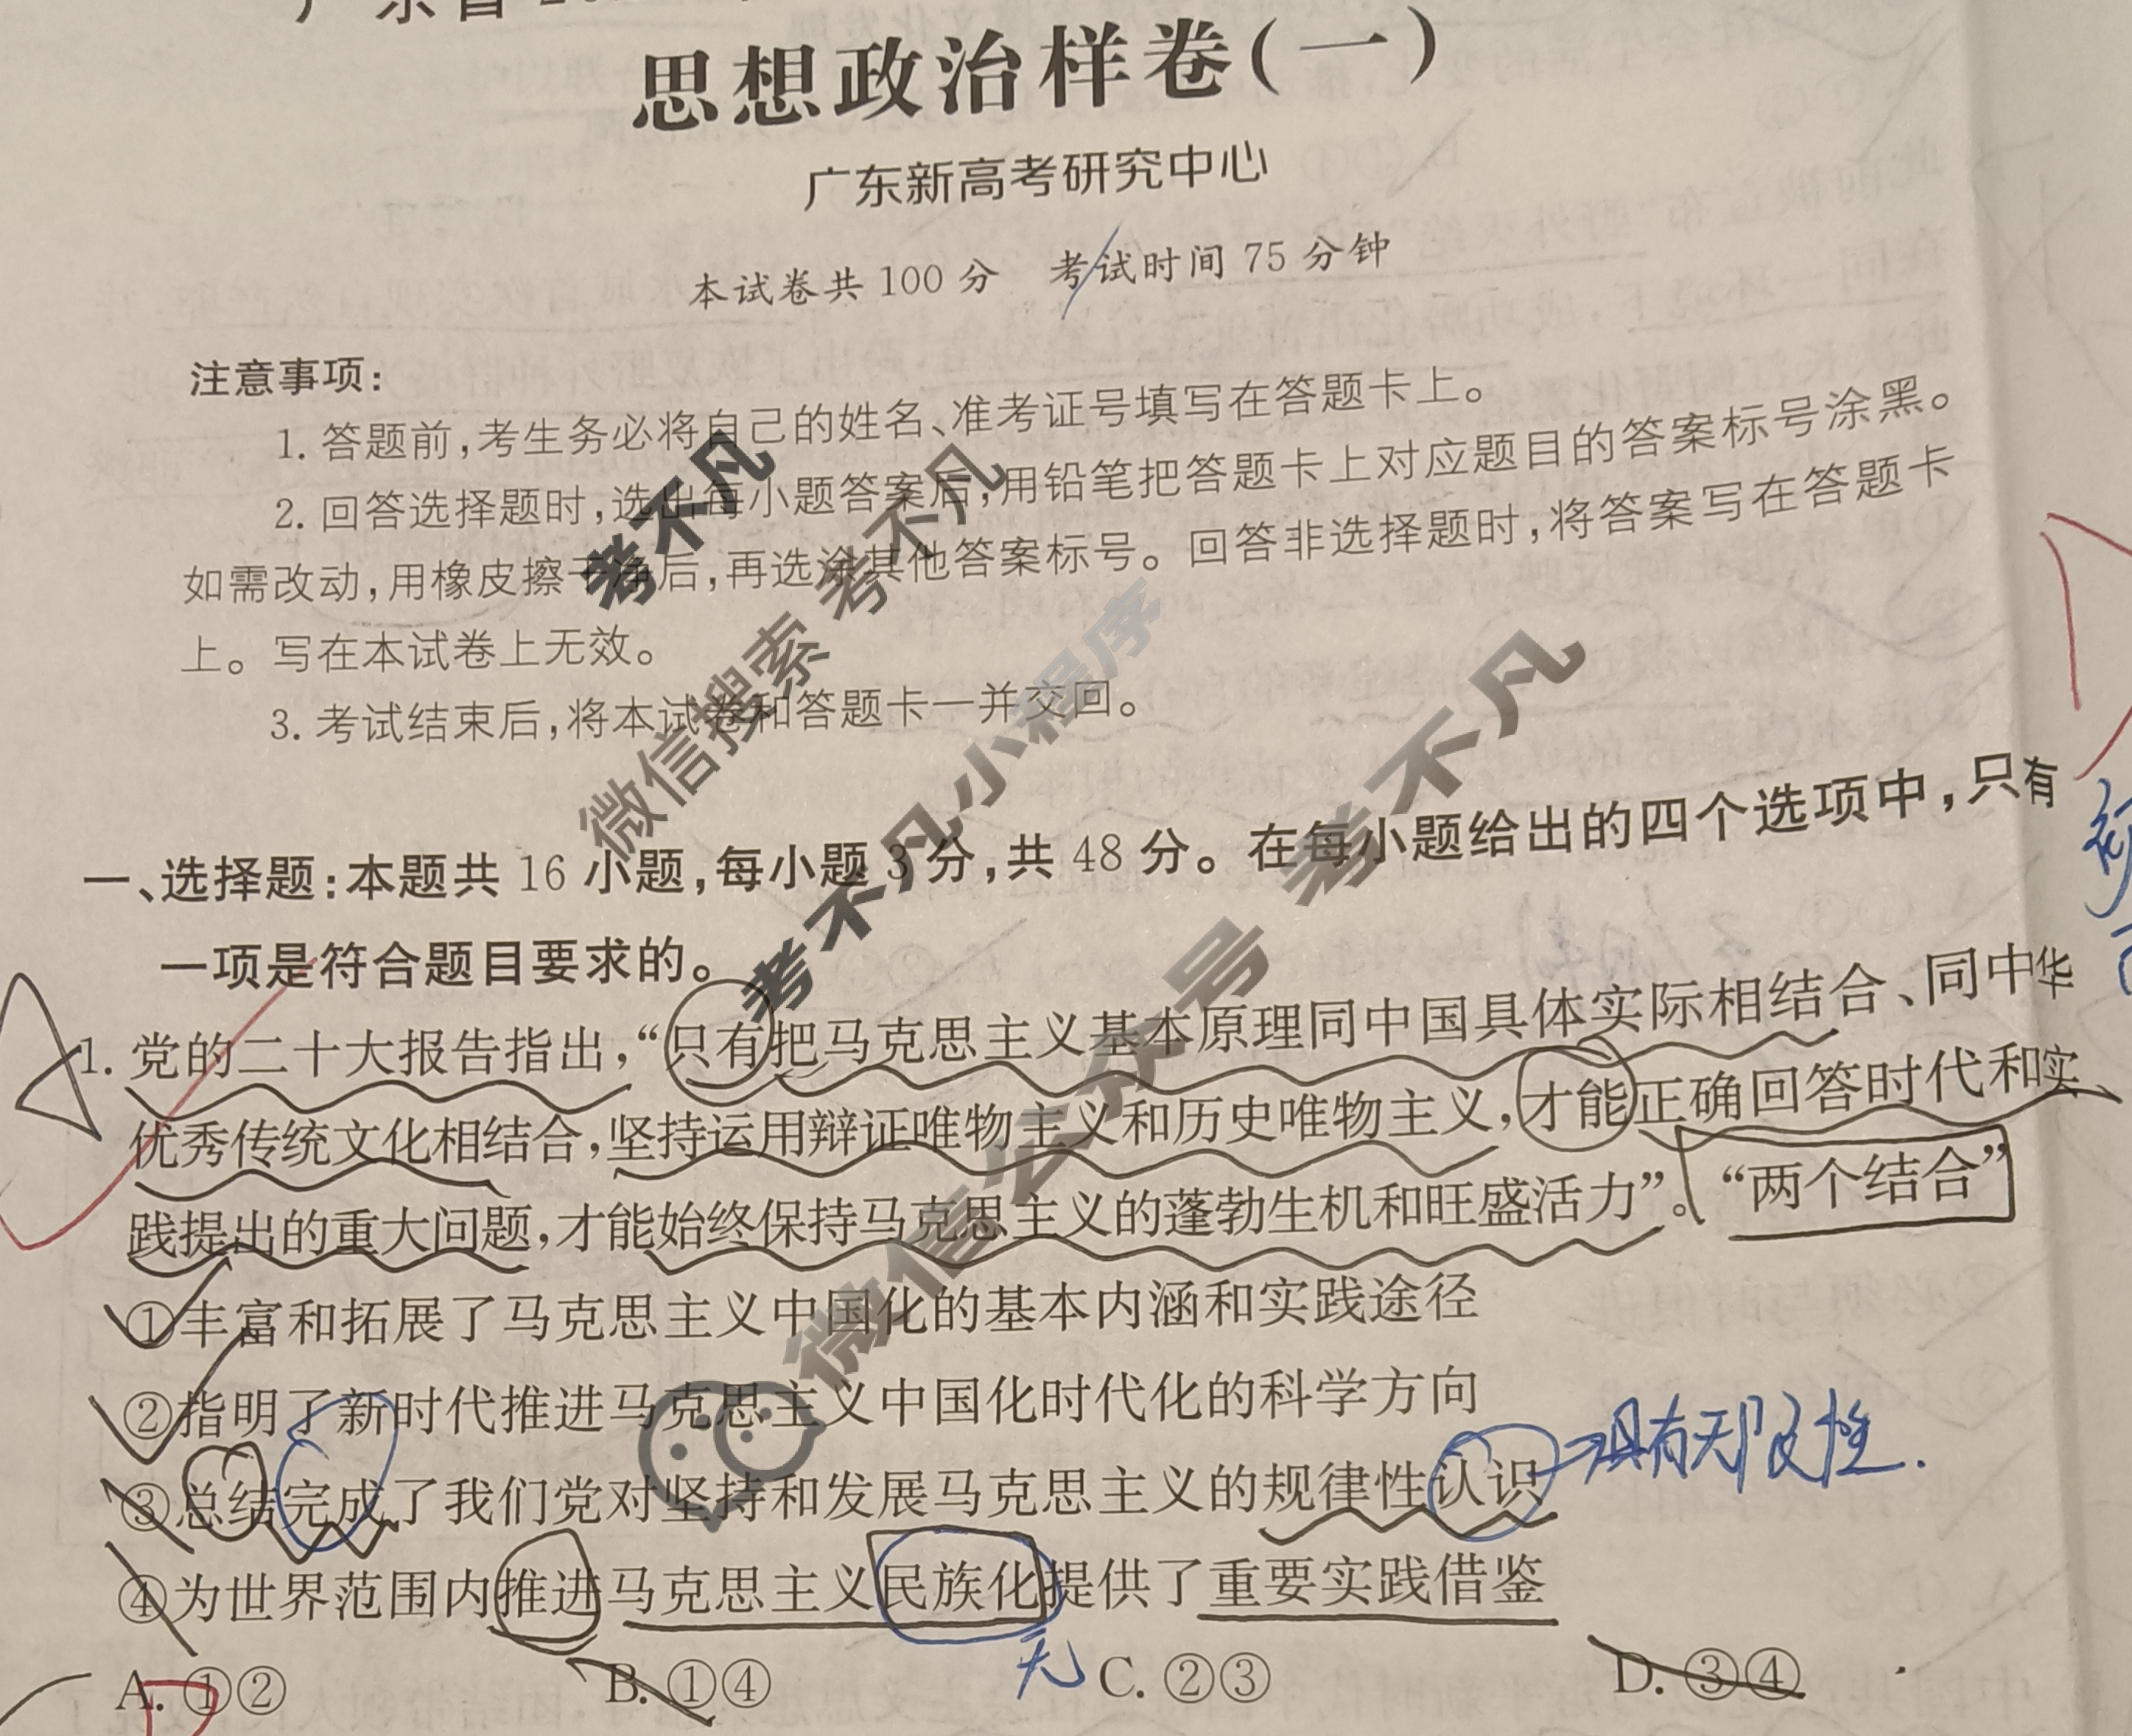 广东省
思想政治样卷(一)
广东新高考研究中心
本试卷共100分 考试时间75分钟
注意事项:
1. 答题前,考生务必将自己的姓名、准考证号填写在答题卡上。
2. 回答选择题时,选出每小题答案后,用铅笔把答题卡上对应题目的答案标号涂黑。
如需改动,用橡皮擦干净后,再选涂其他答案标号。回答非选择题时,将答案写在答题卡
上。写在本试卷上无效。
3. 考试结束后,将本试卷和答题卡一并交回。
考不凡
微信搜索 考不凡
考不凡小程序
微信公众号 考不凡
一、选择题:本题共16小题,每小题3分,共48分。在每小题给出的四个选项中,只有
一项是符合题目要求的。
1. 党的二十大报告指出,“只有把马克思主义基本原理同中国具体实际相结合、同中华
优秀传统文化相结合,坚持运用辩证唯物主义和历史唯物主义,才能正确回答时代和实
践提出的重大问题,才能始终保持马克思主义的蓬勃生机和旺盛活力”。“两个结合”
①丰富和拓展了马克思主义中国化的基本内涵和实践途径
②指明了新时代推进马克思主义中国化时代化的科学方向
③总结完成了我们党对坚持和发展马克思主义的规律性认识
具有无限反复性.
④为世界范围内推进马克思主义民族化提供了重要实践借鉴
无
A. ①② B. ①④ C. ②③ D. ③④